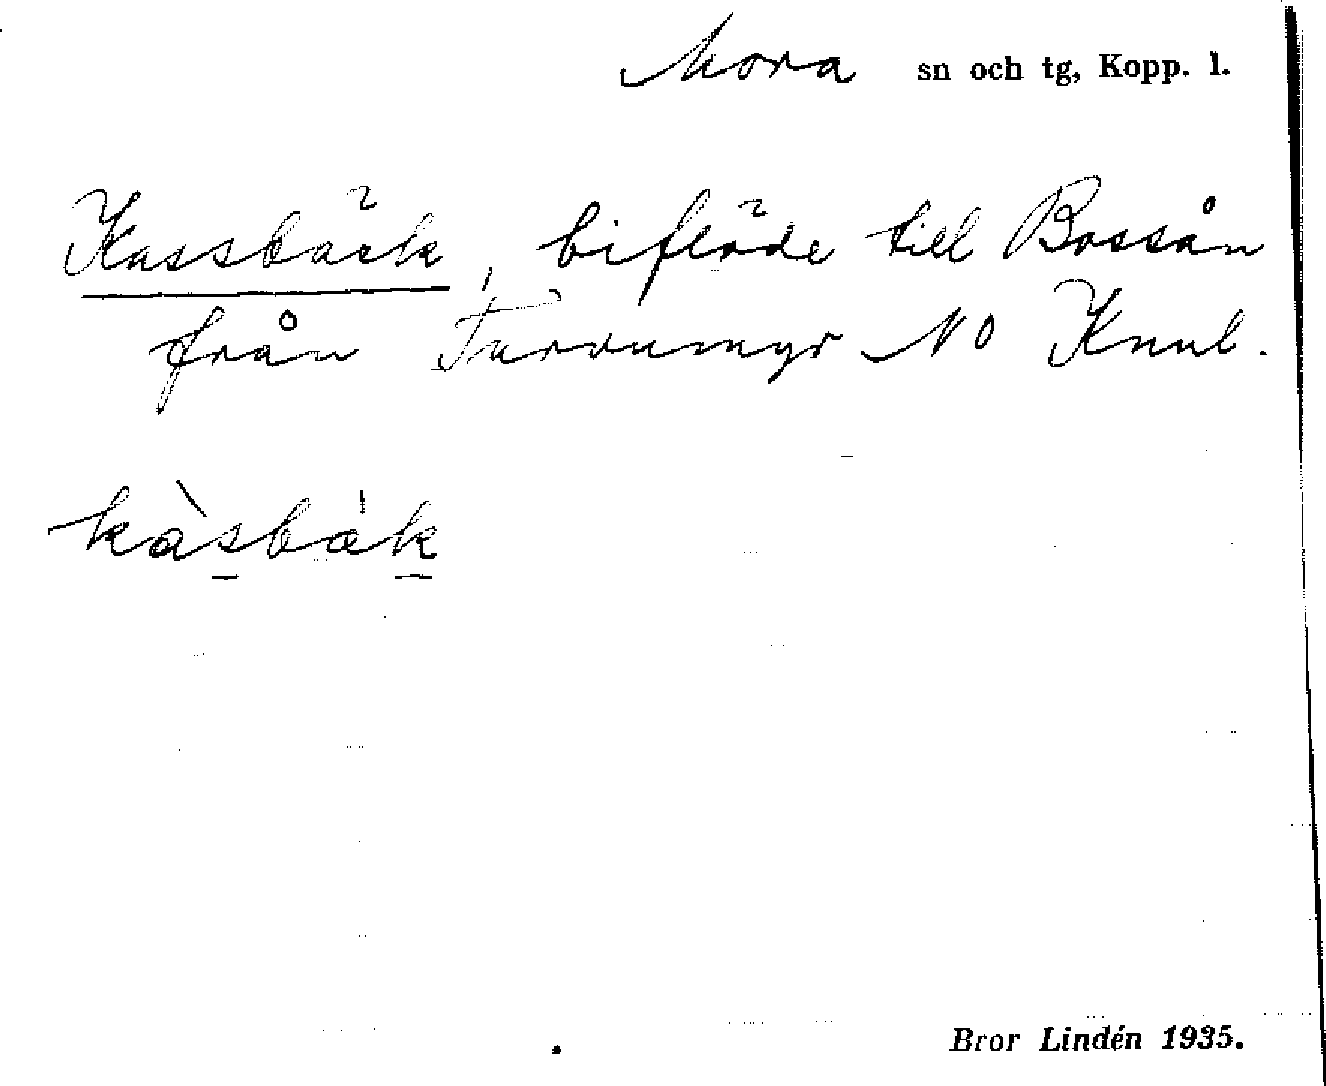 Mora sn och tg, Kopp. l.
Kassbäck, biflöde till Bossån
från Turrumyr NO Knul.
kàsbàk
Bror Lindén 1935.